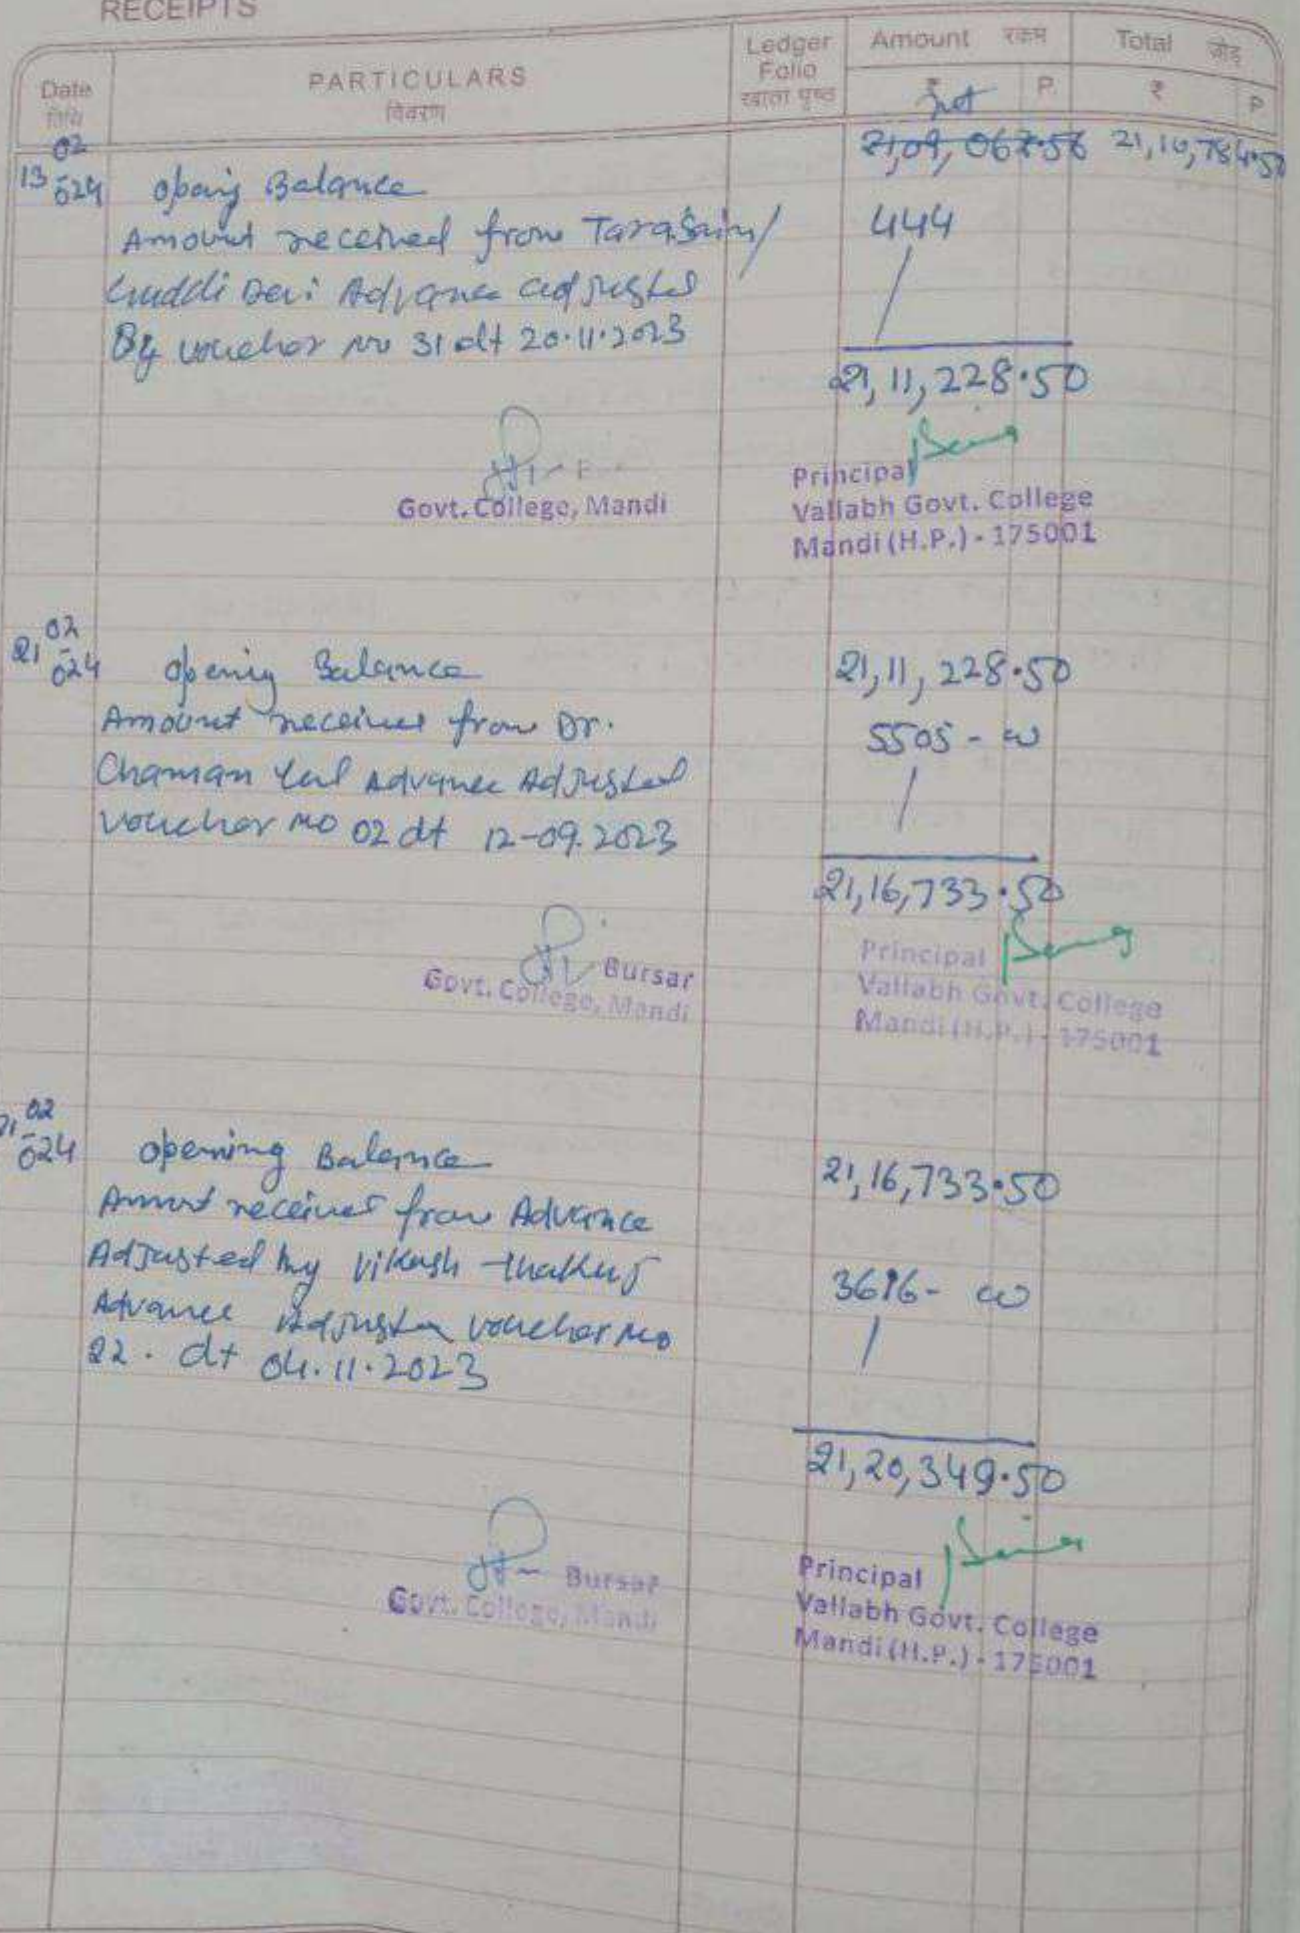 RECEIPTS
Date
तिथि
PARTICULARS
विवरण
Ledger
Folio
खाता पृष्ठ
Amount रकम
P.
Total जोड़
₹
P
13 02 024
21,10,784.50
Opaing Balance
Amount received from Tara
444
Guddi Devi Advance adjusted
By voucher no 31 dt 20.11.2023
21,11,228.50
Govt. College, Mandi
Principal
Vallabh Govt. College
Mandi (H.P.) - 175001
21 02 024
Opening Balance
21,11,228.50
Amount received from Dr.
5505 - 00
Chaman Lal Advance Adjusted
voucher no 02 dt 12-09.2023
21,16,733.50
Bursar
Govt. College, Mandi
Principal
Vallabh Govt. College
Mandi (H.P.) - 175001
21 02 024
Opening Balance
21,16,733.50
Amount received from Advance
Adjusted by Vikash Thakur
3616 - 00
Advance Adjusted voucher no
22. dt 04.11.2023
21,20,349.50
Bursar
Govt. College, Mandi
Principal
Vallabh Govt. College
Mandi (H.P.) - 175001